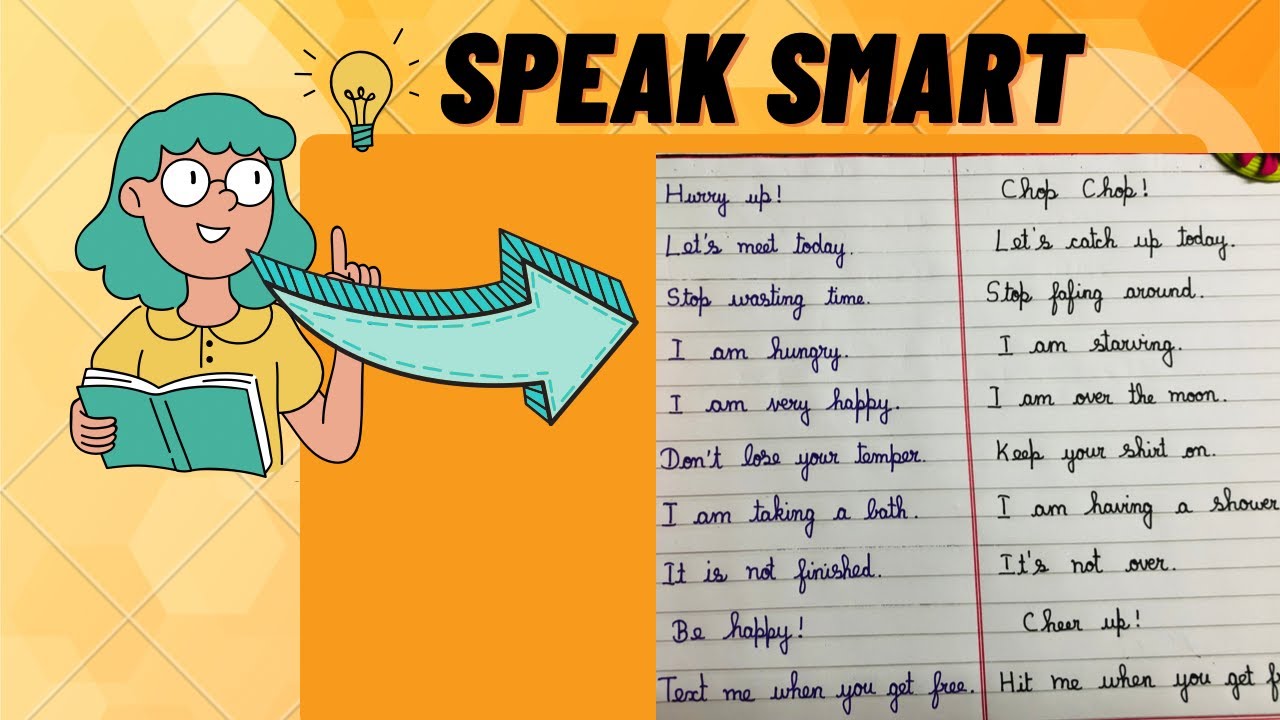 SPEAK SMART
Hurry up! Chop Chop!
Let's meet today. Let's catch up today.
Stop wasting time. Stop fafing around.
I am hungry. I am starving.
I am very happy. I am over the moon.
Don't lose your temper. Keep your shirt on.
I am taking a bath. I am having a shower
It is not finished. It's not over.
Be happy! Cheer up!
Text me when you get free. Hit me when you get